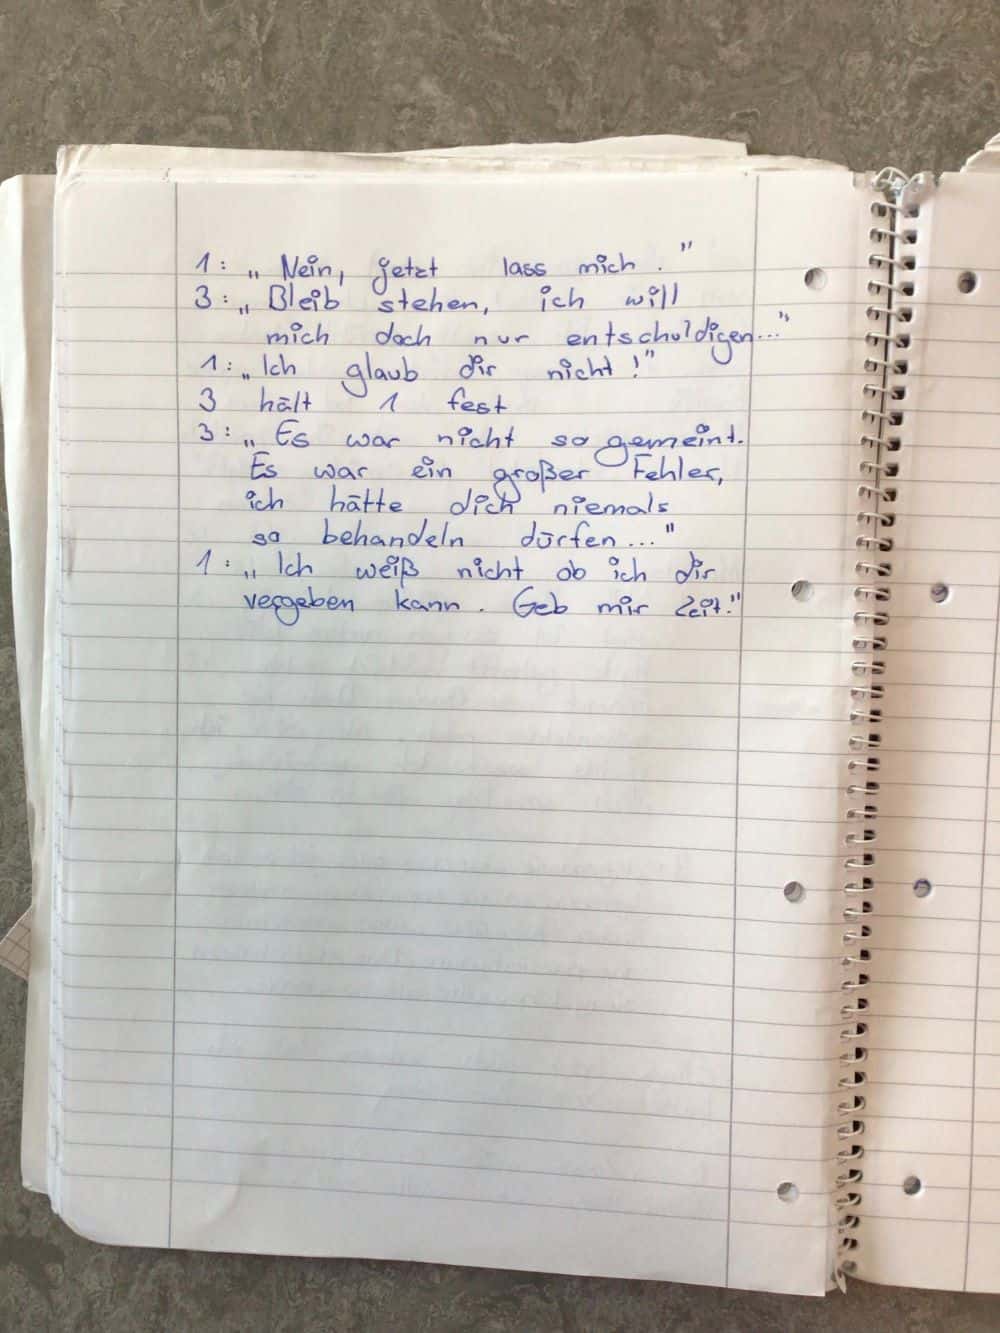 1: „Nein, jetzt lass mich."
3: „Bleib stehen, ich will
mich doch nur entschuldigen..."
1: „Ich glaub dir nicht!"
3 hält 1 fest
3: „Es war nicht so gemeint.
Es war ein großer Fehler,
ich hätte dich niemals
so behandeln dürfen..."
1: „Ich weiß nicht ob ich dir
vergeben kann. Geb mir Zeit."